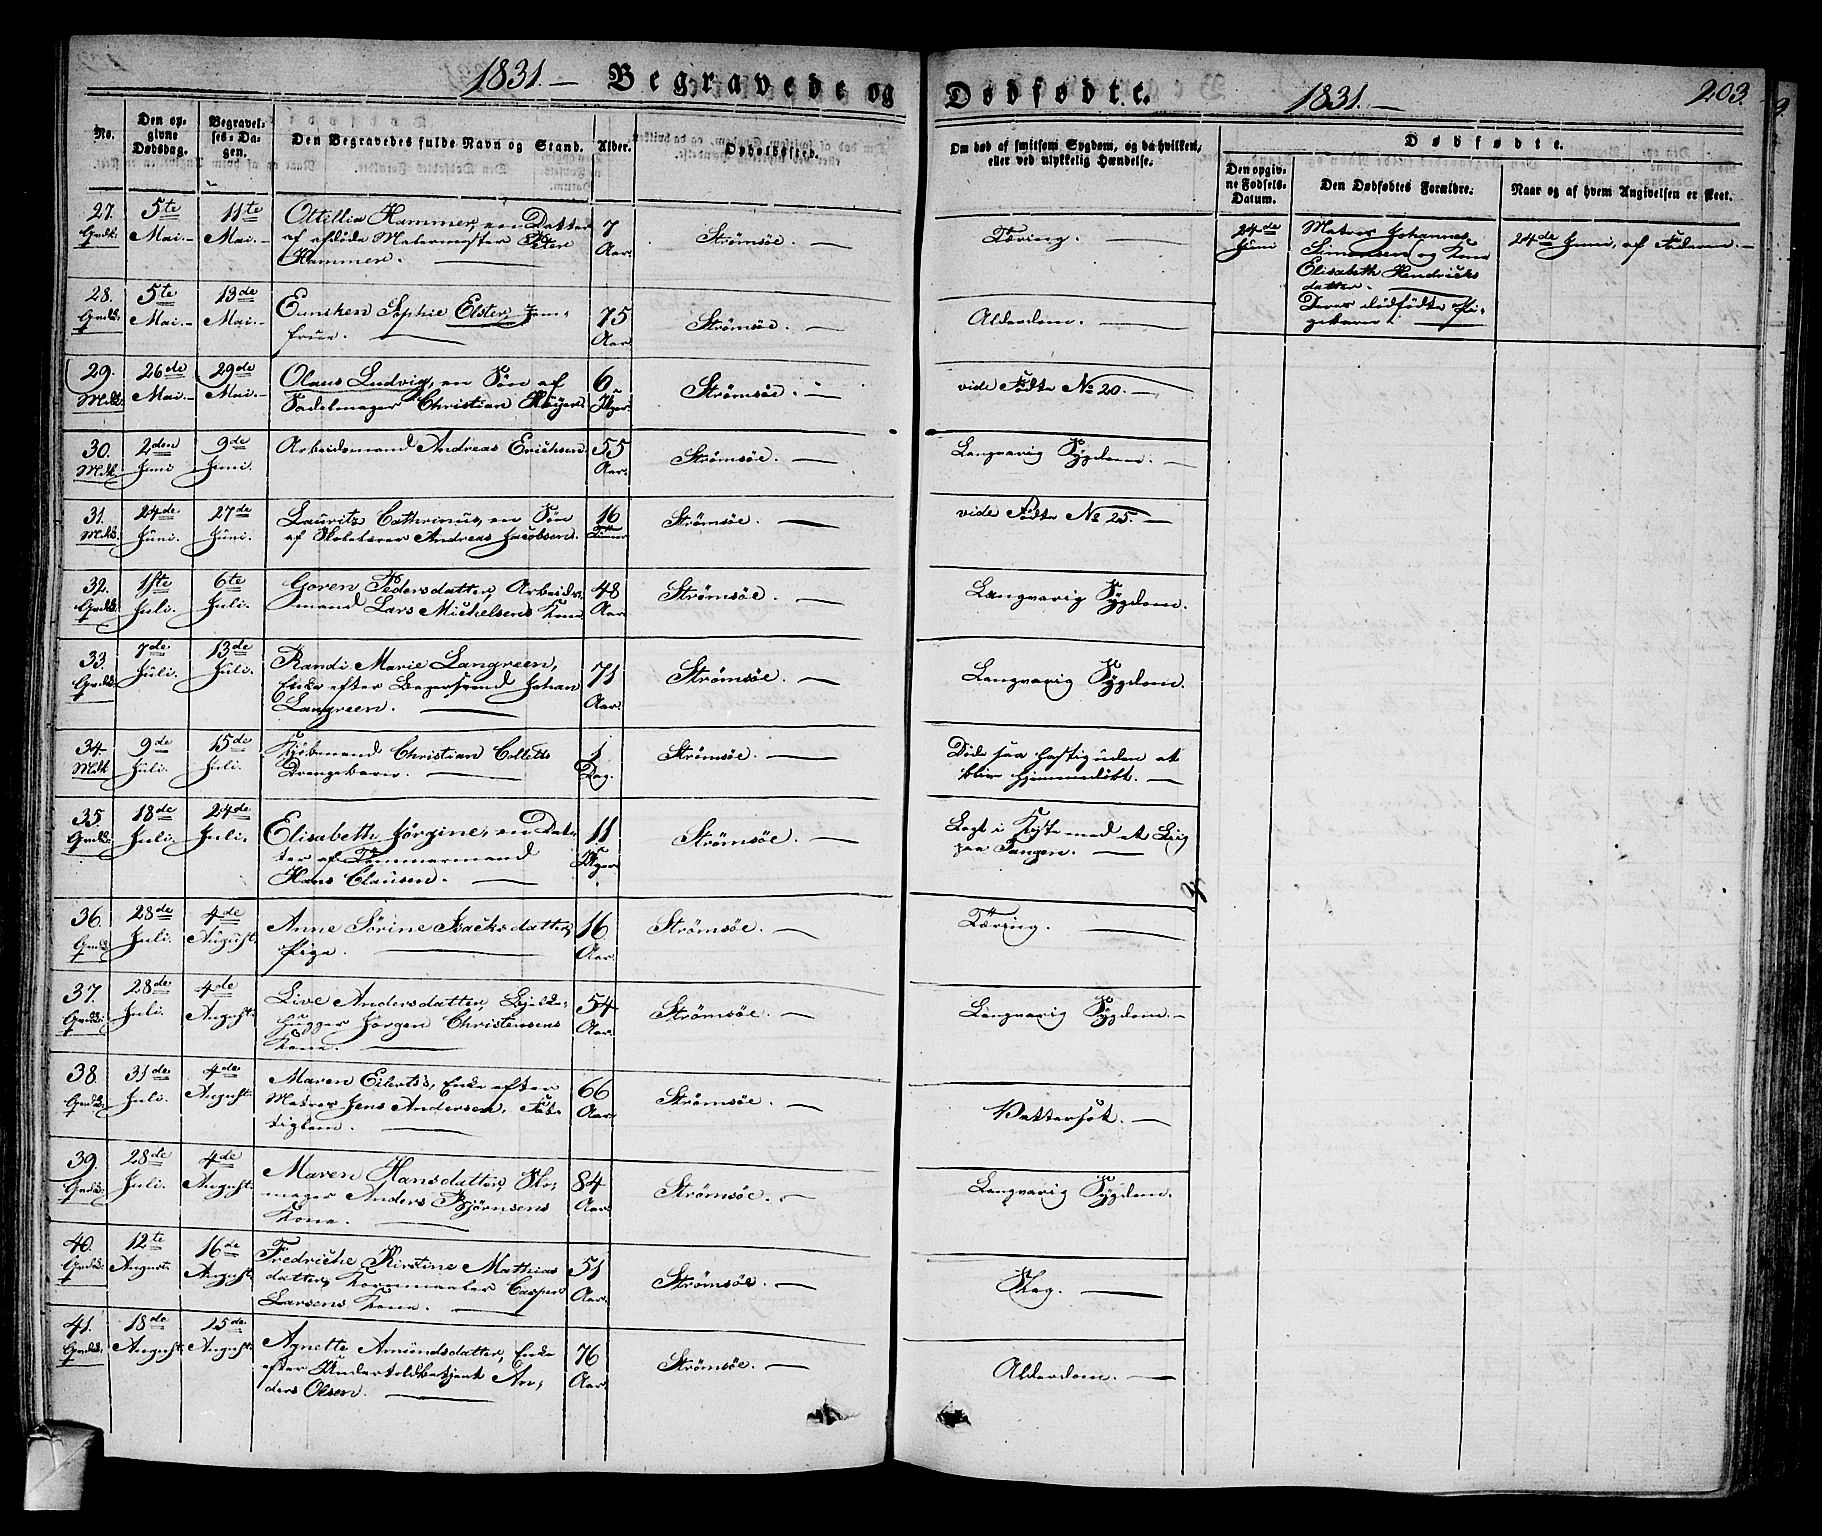 1831. — Begravede og Dødfødte. 1831. — 203.
No.
Den opgivne Dødsdag.
Begravelses-Dagen.
Den Begravedes fulde Navn og Stand.
Alder.
Opholdssted.
Om død af smitsom Sygdom, og da hvilken, eller ved ulykkelig Hændelse.
Dødfødte.
Den opgivne Fødsels-Datum.
Den Dødfødtes Forældre.
Naar og af hvem Angivelsen er skeet.
27. Qvdk. 5te Mai. 11te Mai.
Ottillia Hammer, en Datter
af afdøde Malermester Peter
Hammer. —
7 Aar.
Strømsøe. —
Tæring. —
24de Juni
Matros Johannes
Simonsen og Kone
Elisabeth Hendricks
datter. —
Deres dødfødte Pi-
gebarn. —
24de Juni, af Faderen. —
28. Qvdk. 5te Mai. 13de Mai.
Sophie Elster, Jom-
frue. —
75 Aar.
Strømsøe. —
Alderdom. —
29. Mdk. 26de Mai. 29de Mai.
Olaus Ludvig, en Søn af
Sadelmager Christian
6 Uger.
Strømsøe. —
vide Fødte No 20. —
30. Mdk. 2den Juni 9de Juni.
Arbeidsmand Andreas Erichsen
55 Aar.
Strømsøe. —
Langvarig Sygdom. —
31. Mdk. 24de Juni. 27de Juni.
Laurits Cathrinus, en Søn
af Andreas Jacobsen.
16 Timer
Strømsøe. —
vide Fødte No 25. —
32. Qvdk. 1ste Juli. 6te Juli.
Goren Pedersdatter, Arbeids-
mand Lars Michelsens Kone
48 Aar.
Strømsøe. —
Langvarig Sygdom.
33. Qvdk. 7de Juli. 13de Juli.
Randi Marie Langreen,
Enke efter Bagersvend Johan
Langreen. —
71 Aar.
Strømsøe. —
Langvarig Sygdom.
34. Mdk 9de Juli. 15de Juli.
Kjøbmand Christian Colletts
Drengebarn. —
1 Dag.
Strømsøe. —
Døde saa hastig uden at
blive hjemmedøbt. —
35. Qvdk. 18de Juli. 24de Juli.
Elisabeth Jørgine, en Dat-
ter af Tømmermand
Hans Clausen. —
11 Uger
Strømsøe. —
Lagt i Kiste med et Liig
paa Tangen. —
36. Qvdk. 28de Juli. 4de August.
Anne Sørine Isacksdatter,
Pige. —
16 Aar.
Strømsøe. —
Tæring. —
37. Qvdk. 28de Juli. 4de August.
Live Andersdatter, Bjelke-
hugger Jørgen Christensens
Kone. —
54 Aar.
Strømsøe. —
Langvarig Sygdom. —
38. Qvdk. 31de Juli. 4de August.
Maren Eilerts, Enke efter
Matros Jens Andersen, Fat-
tiglem. —
66 Aar.
Strømsøe. —
Vattersot. —
39. Qvdk. 28de Juli. 4de August.
Maren Hansdatter, Sko-
mager Anders Bjørnsens
Kone. —
84 Aar.
Strømsøe. —
Langvarig Sygdom.
40. Qvdk. 12te August 16de August.
Fredriche Kirstine Mathias
datter, Kornmaaler Casper
Larsens Kone. —
51 Aar.
Strømsøe. —
Slag. —
41. Qvdk. 18de August. 25de August.
Agnette Amundsdatter, Enke
efter Undertoldbetjent An-
ders Olsen. —
76 Aar.
Strømsøe. —
Alderdom. —